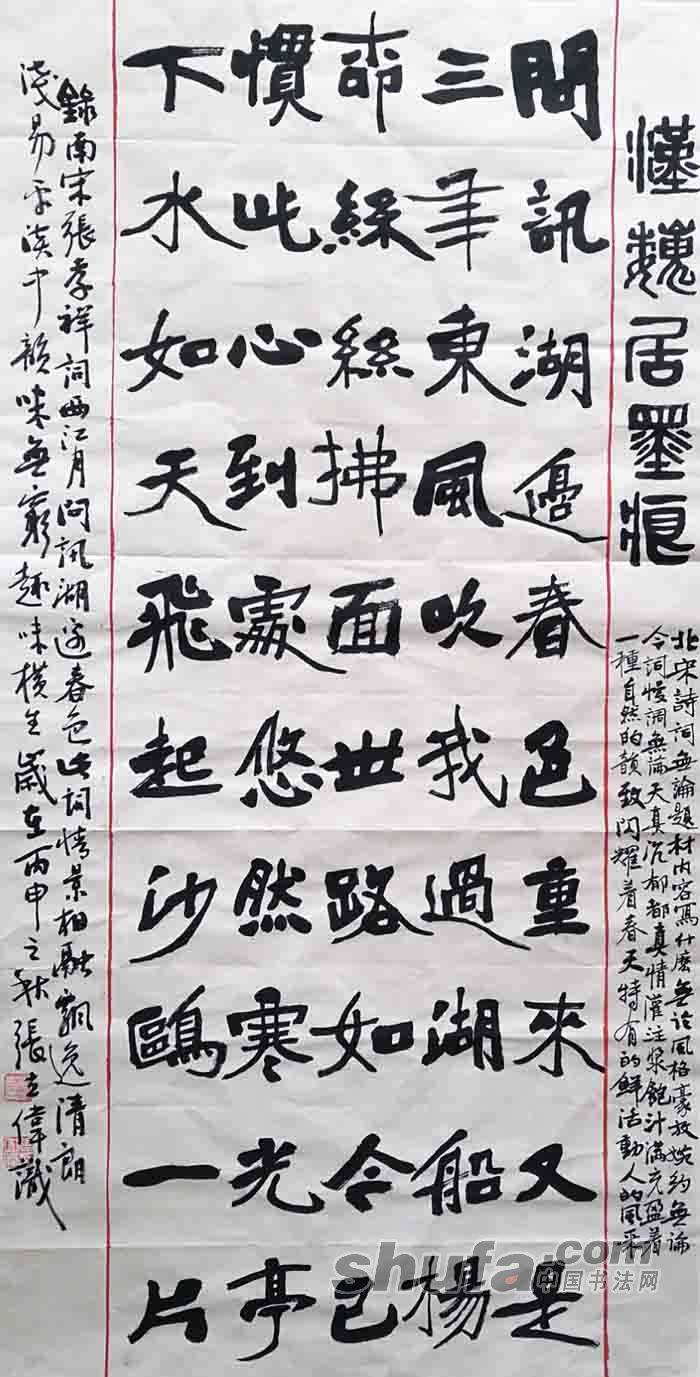 漢魏居墨痕
北宋詩詞無論題材内容寫什麽無论風格豪放婉约無論
令詞慢調無論天真沉郁都真情灌注漿飽汁满充盈着
一種自然的韻致闪耀着春天特有的鮮活動人的風采
問訊湖邊春色重來又是
三年東風吹我過湖船楊
柳絲絲拂面世路如今已
慣此心到處悠然寒光亭
下水如天飛起沙鷗一片
錄南宋張孝祥詞西江月問訊湖邊春色此詞情景相融飄逸清朗
淺易平淡中韻味無窮趣味横生歲在丙申之秋張立偉識
shufa.com
中国书法网